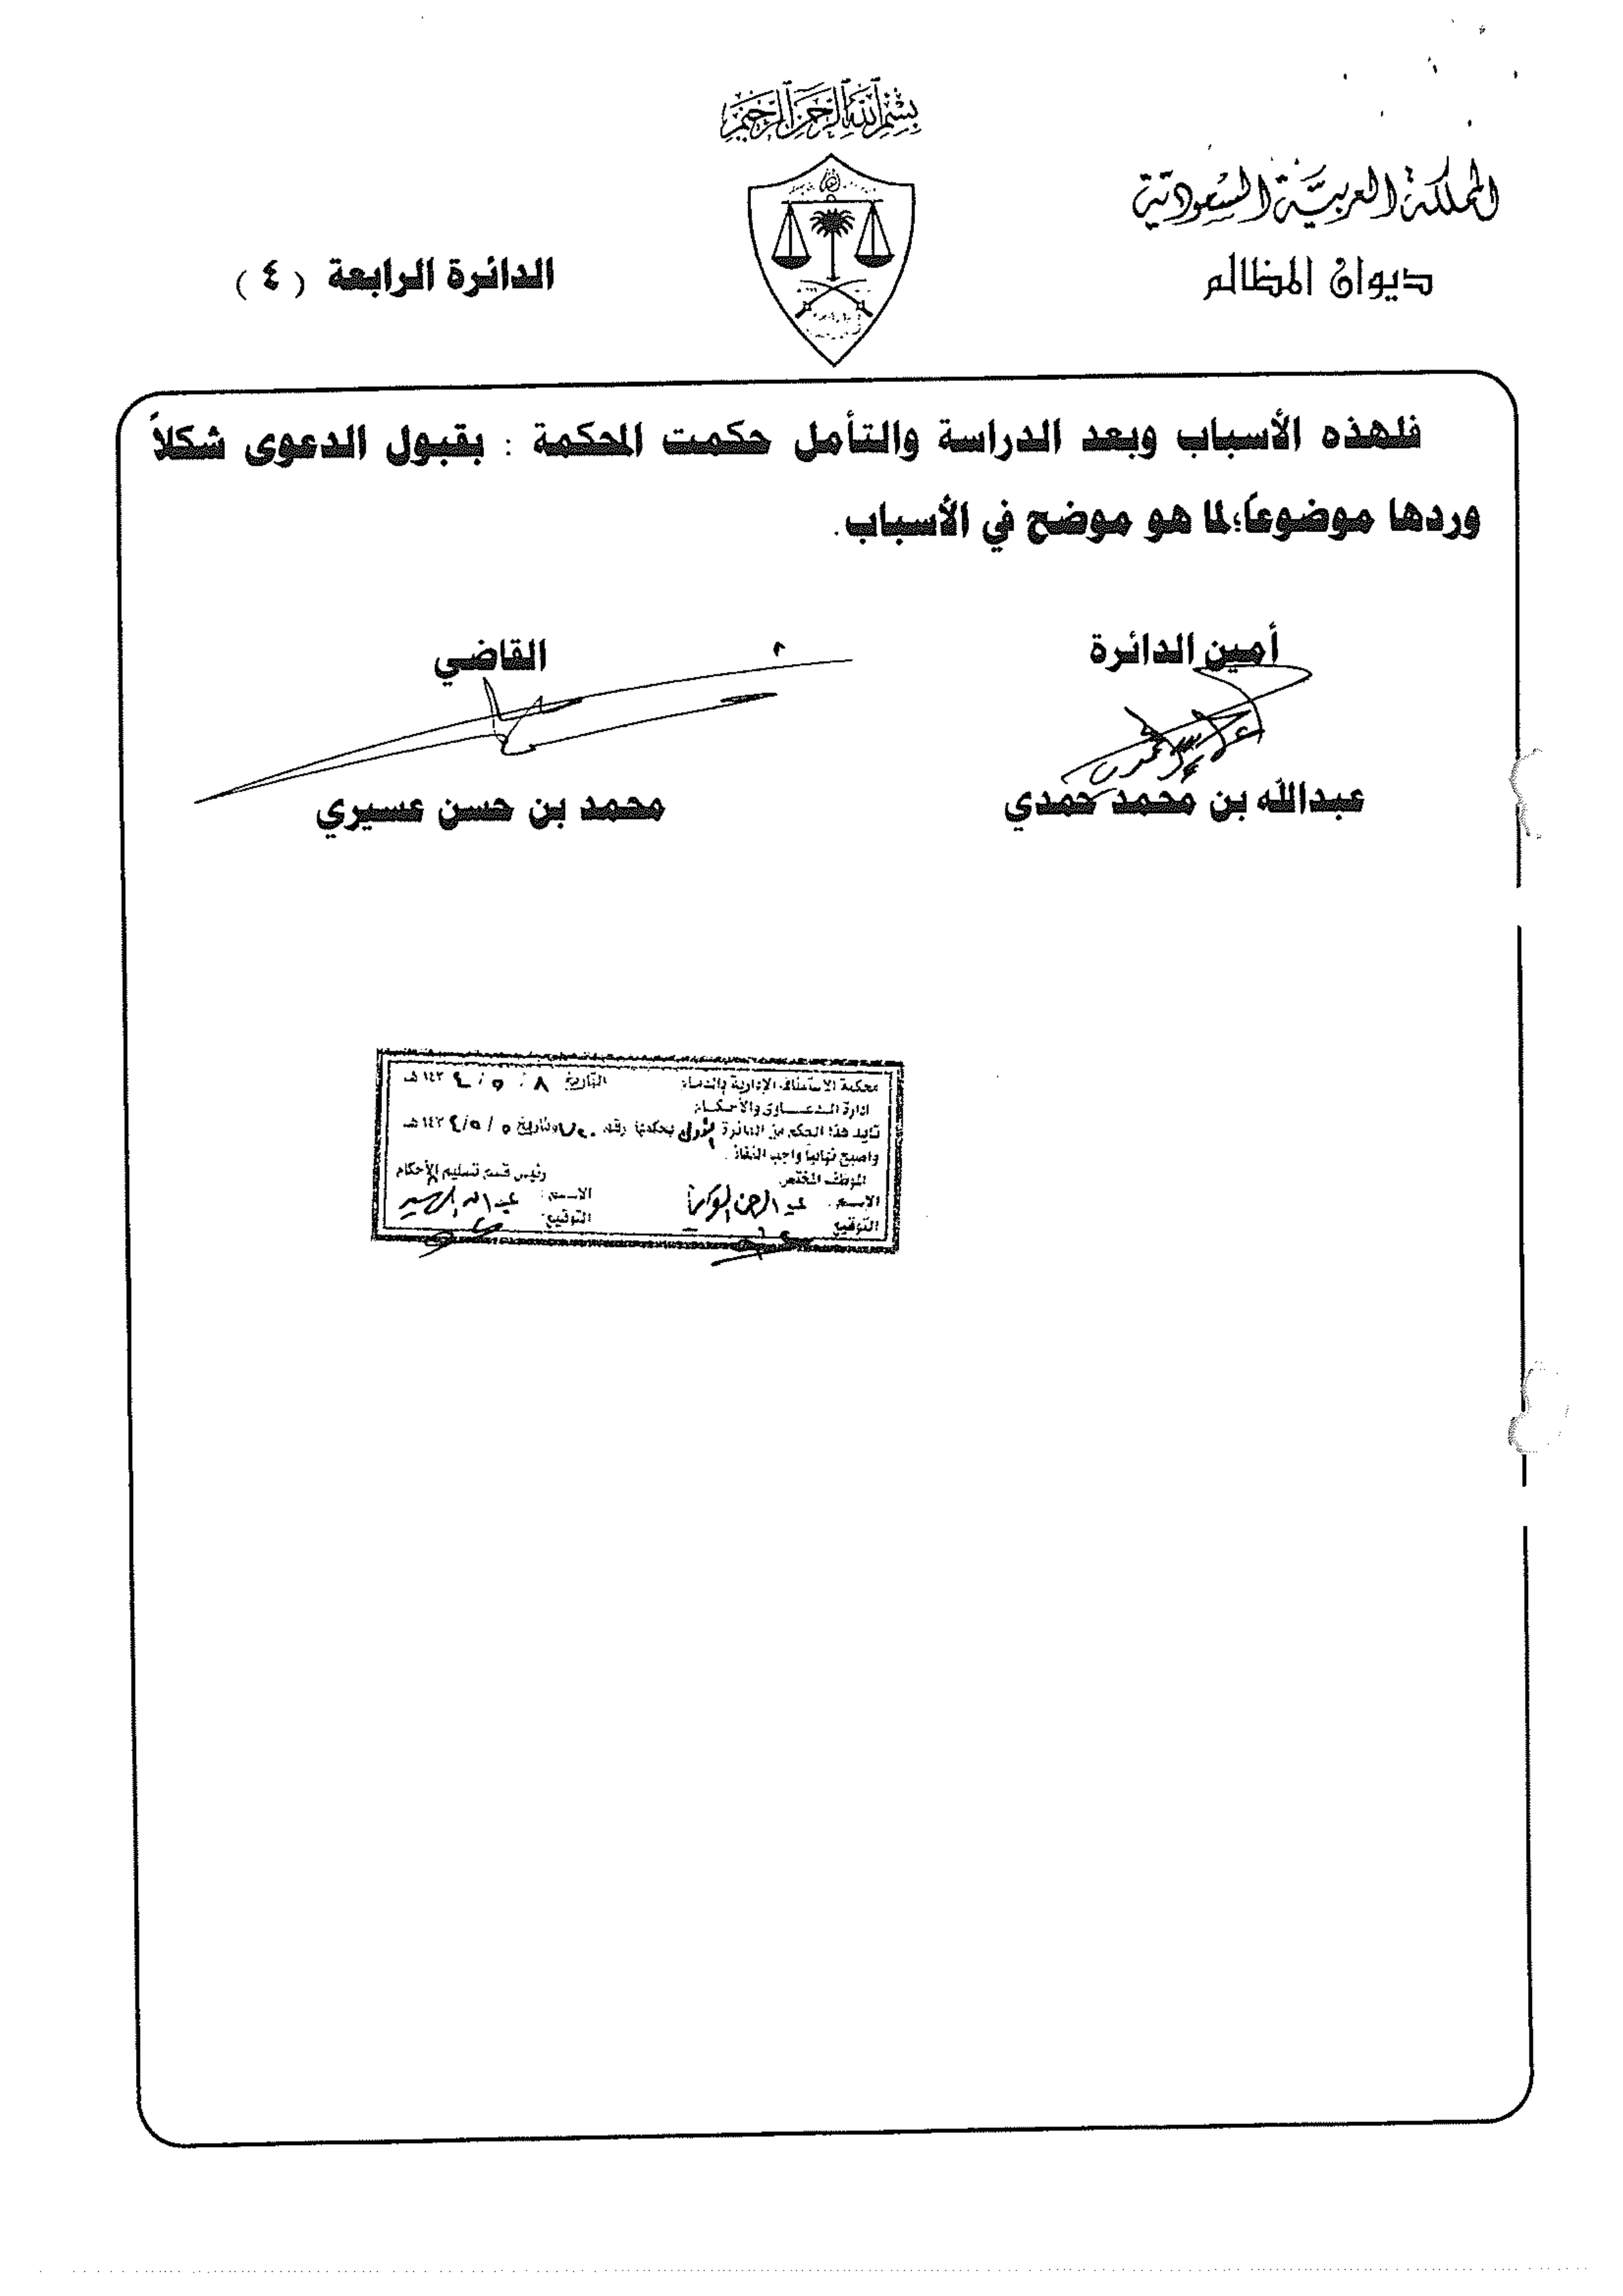 بسم الله الرحمن الرحيم
المملكة العربية السعودية
ديوان المظالم
الدائرة الرابعة ( ٤ )
فلهذه الأسباب وبعد الدراسة والتأمل حكمت المحكمة : بقبول الدعوى شكلاً
وردها موضوعاً؛لما هو موضح في الأسباب.
أمين الدائرة
القاضي
عبدالله بن محمد حمدي
محمد بن حسن عسيري
محكمة الاستئناف الإدارية بالدمام
التاريخ ٨ / ٥ / ١٤٣٤ هـ
إدارة الدعاوى والأحكام
تايد هذا الحكم من الدائرة الأولى بحكمها رقم وتاريخ ٥ / ٥ / ١٤٣٤ هـ
واصبح نهائياً واجب النفاذ.
الموظف المختص
رئيس قسم تسليم الأحكام
الاسم:
الاسم:
التوقيع
التوقيع: